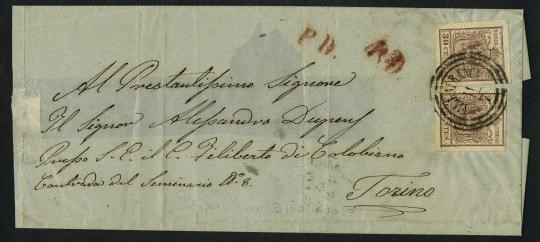 P.D. P.D
30 CENT
Al Prestantissimo Signore
Il Signor Alessandro
Presso S. E. il C. Filiberto di Colobiano
Contrada del Seminario N.° 8.
Torino